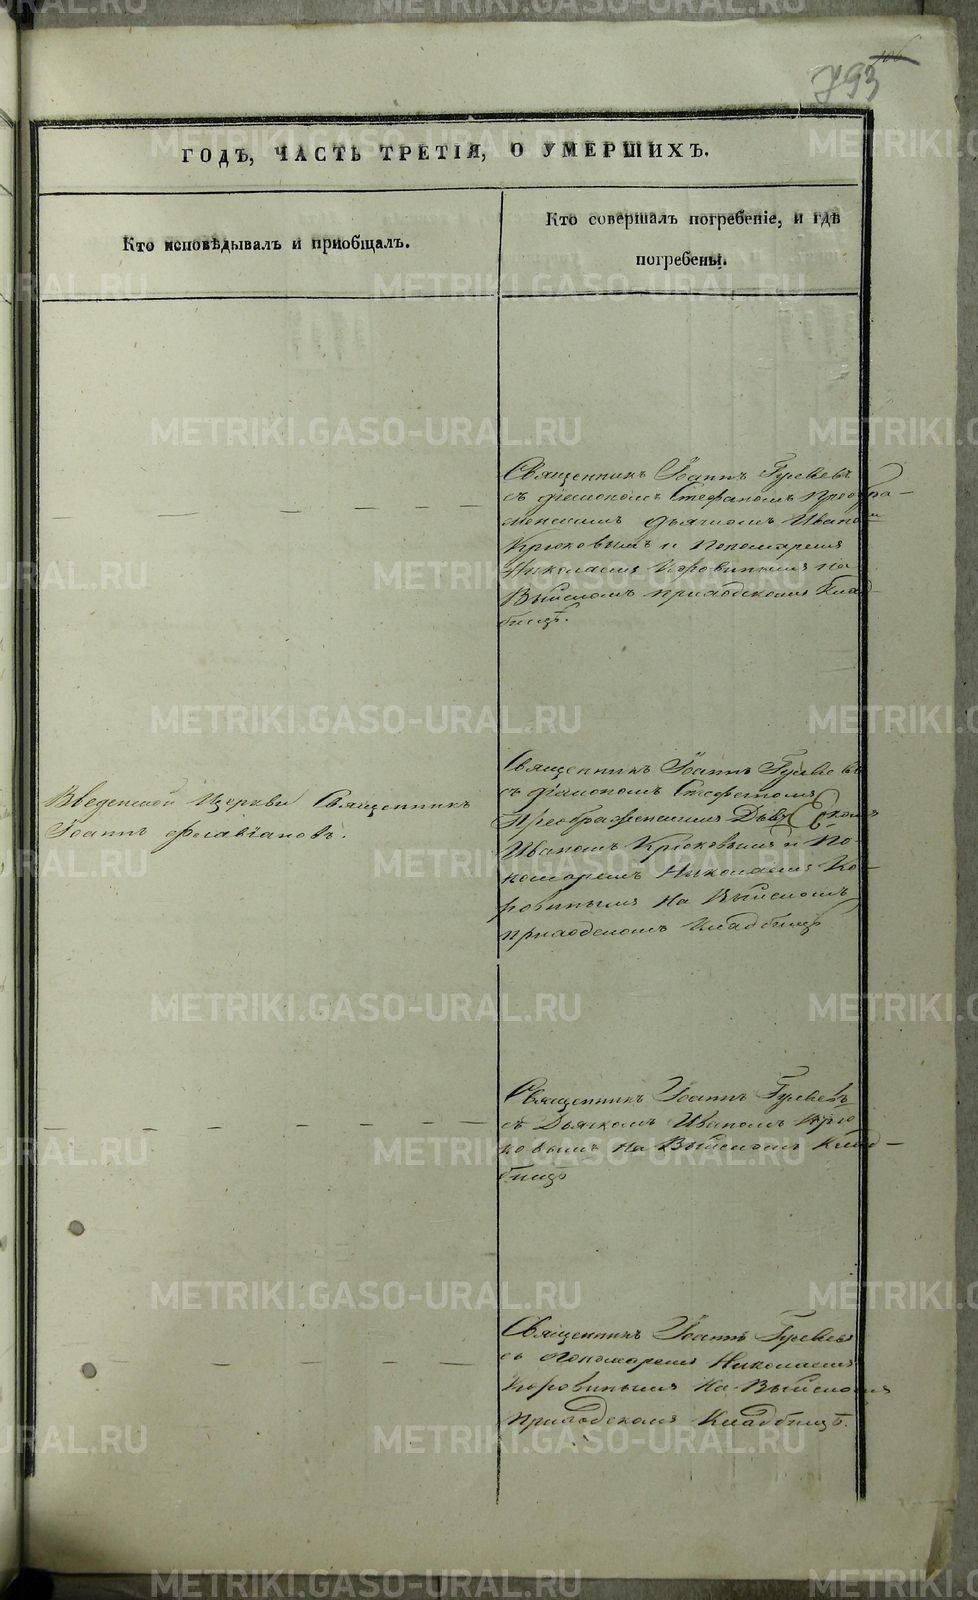 106
793
ГОДЪ, ЧАСТЬ ТРЕТІЯ, О УМЕРШИХЪ.
Кто исповѣдывалъ и приобщалъ.
Кто совершалъ погребеніе, и гдѣ
погребены.
Священникъ Іоаннъ Гурьевъ
съ діакономъ Стефаномъ Преобра-
женскимъ дьячкомъ Иваномъ
Крюковымъ и Пономаремъ
Николаемъ Коровинымъ на
Выйскомъ приходскомъ Клад-
бищѣ.
Введенской Церкви Священникъ
Іоаннъ Флавіановъ.
Священникъ Іоаннъ Гурьевъ
съ діакономъ Стефаномъ
Преображенскимъ
Иваномъ Крюковымъ и По-
номаремъ Николаемъ Ко-
ровинымъ на Выйскомъ
приходскомъ Кладбищѣ
Священникъ Іоаннъ Гурьевъ
съ Дьячкомъ Иваномъ Крю
ковымъ на Выйскомъ Клад-
бищѣ
Священникъ Іоаннъ Гурьевъ
съ Пономаремъ Николаемъ
Коровинымъ на Выйскомъ
приходскомъ Кладбищѣ.
METRIKI.GASO-URAL.RU